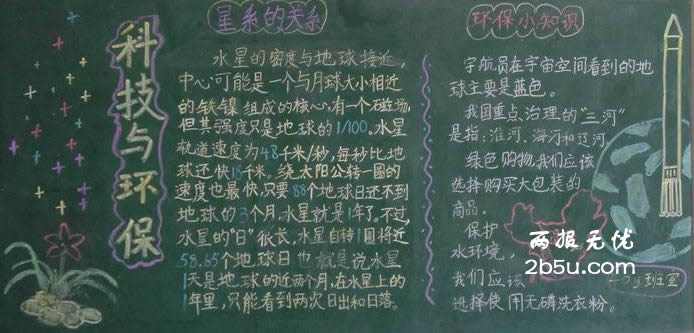 科技与环保
星系的关系
水星的密度与地球接近,
中心可能是一个与月球大小相近
的铁镍组成的核心,有一个磁场,
但其强度只是地球的1/100.水星
轨道速度为48千米/秒,每秒比地
球还快18千米,绕太阳公转一圈的
速度也最快,只要88个地球日还不到
地球的3个月,水星就是1年了,不过,
水星的“日”很长,水星自转1圆将近
58.65个地球日也就是说水星
1天是地球的近两个月,在水星上的
1年里,只能看到两次日出和日落。
环保小知识
宇航员在宇宙空间看到的地
球主要是蓝色。
我国重点治理的“三河”
是指:淮河、海河和辽河
绿色购物,我们应该
选择购买大包装的
商品.
保护
水环境,
我们应该
选择使用无磷洗衣粉。
班宣
两报无优
2b5u.com